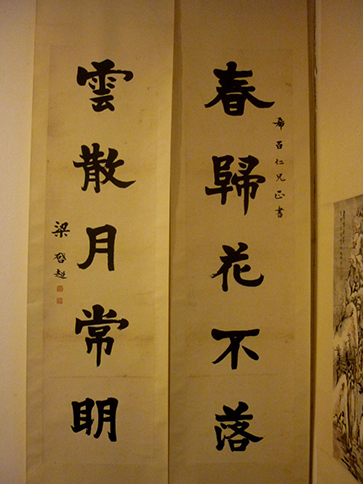 春歸花不落
仁兄正書
雲散月常明
梁啟超